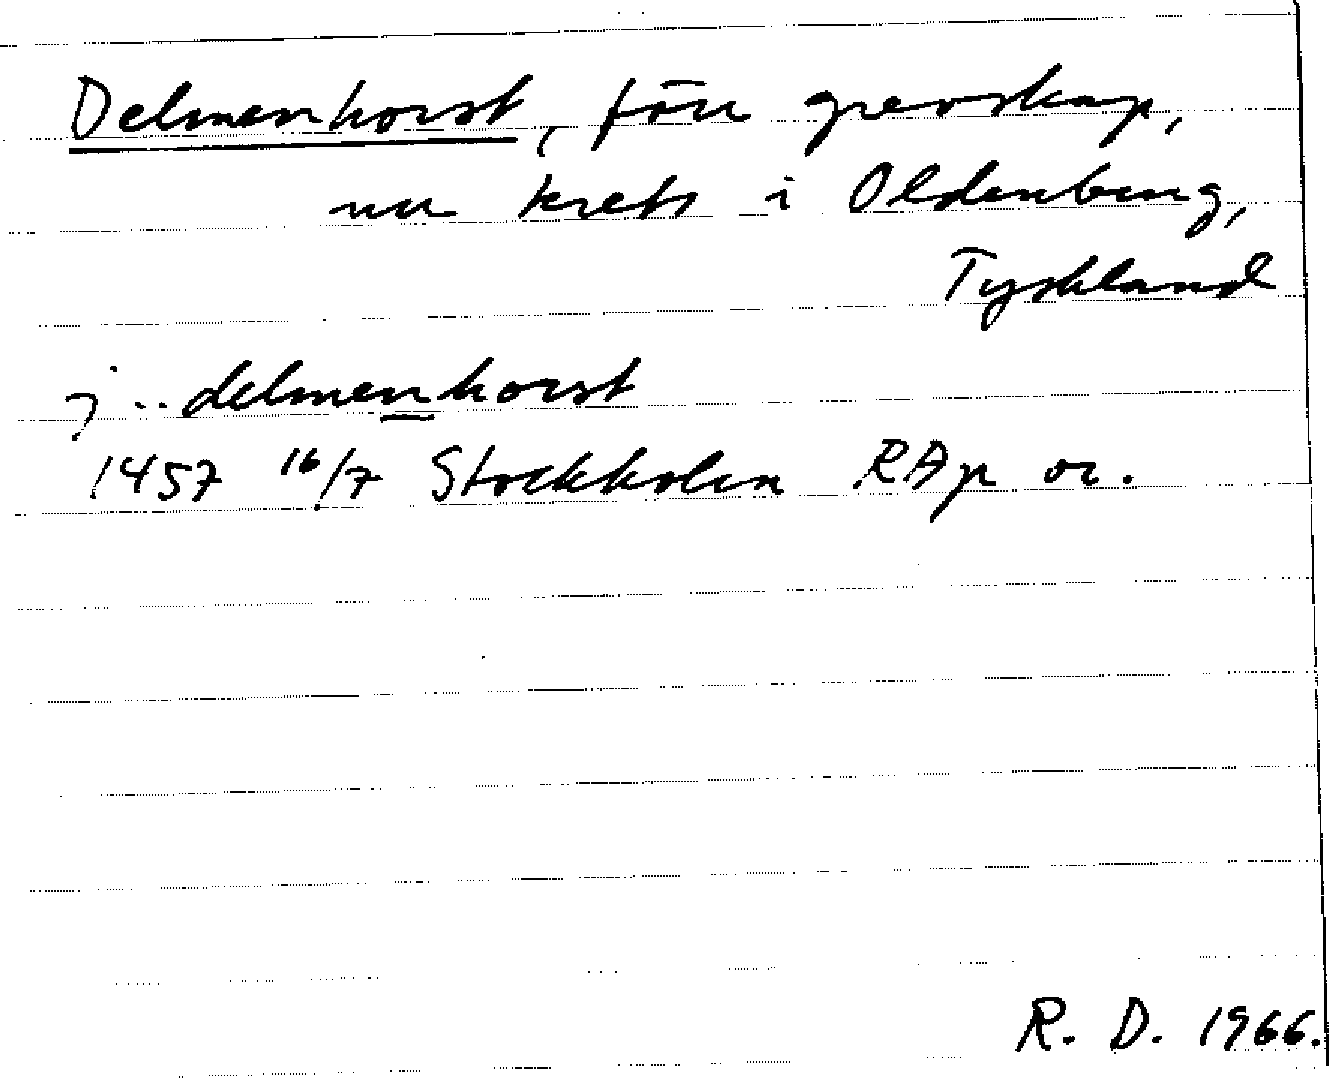 Delmenhorst, förr grevskap,
nu krets i Oldenburg,
Tyskland
j .. delmenhorst
1457 16/7 Stockholm RAp or.
R. D. 1966.